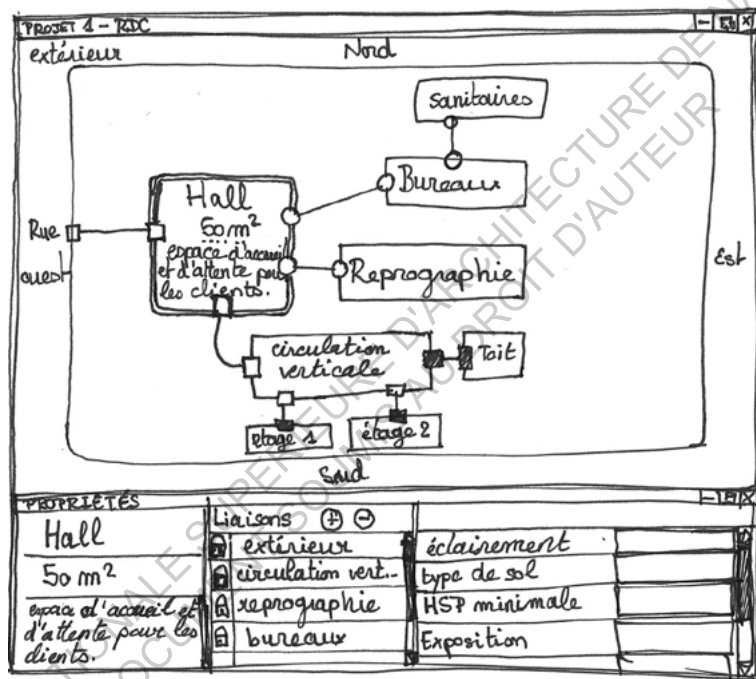 PROJET 1 - RDC
extérieur
Nord
sanitaires
Bureaux
Hall
50 m²
espace d'accueil
et d'attente pour
les clients.
Rue
ouest
Reprographie
Est
circulation
verticale
Toit
etage 1
étage 2
Sud
PROPRIÉTÉS
Hall
50 m²
espace d'accueil et
d'attente pour les
clients.
Liaisons
extérieur
circulation vert...
reprographie
bureaux
éclairement
type de sol
HSP minimale
Exposition
NATIONALE SUPERIEURE D'ARCHITECTURE DE
DOCUMENT SOUMIS AU DROIT D'AUTEUR